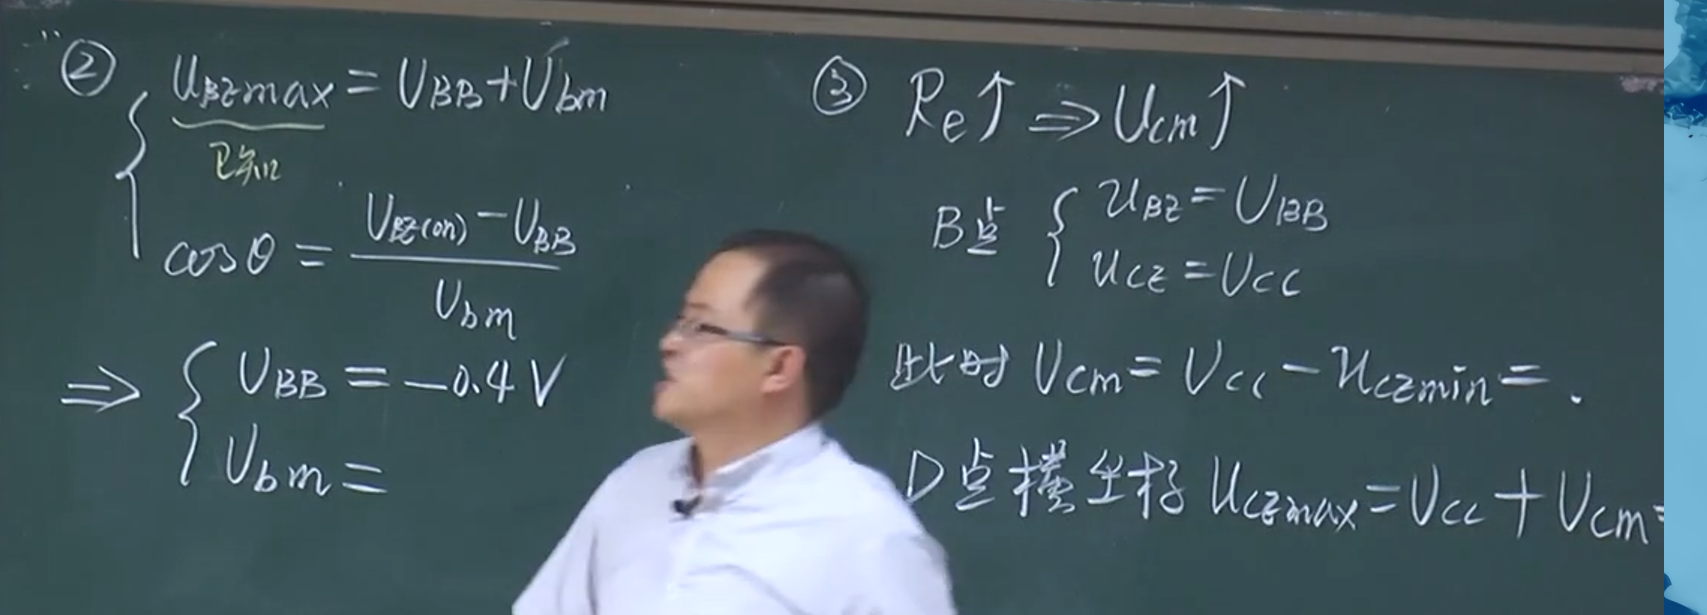 ② uBZmax = UBB + Ubm
已知
cosθ = (UBZ(on) - UBB) / Ubm
⇒ { UBB = -0.4V
Ubm =
③ Re↑ ⇒ Ucm↑
B点 { uBZ = UBB
uCZ = UCC
此时 Ucm = Ucc - uCZmin = .
D点横坐标 uCZmax = Ucc + Ucm =